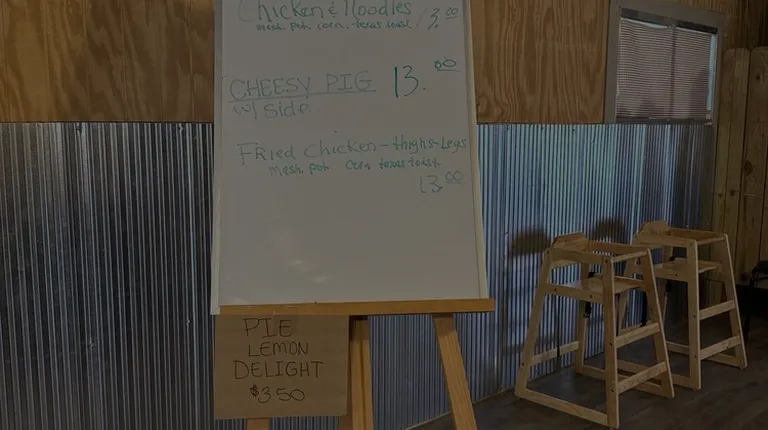 Chicken & Noodles 13.00
mash. pot. corn. texas toast
CHEESY PIG 13.00
w/ Side
Fried Chicken - thighs-Legs
mash. pot. corn texas toast
13.00
PIE
LEMON
DELIGHT
$3.50